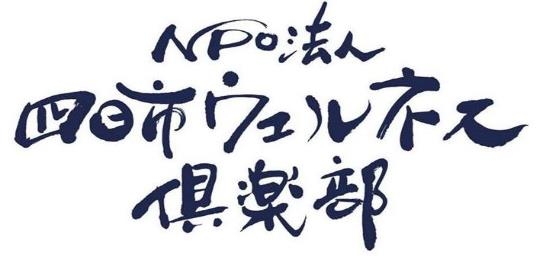 NPO法人
四日市ウェルネス
倶楽部